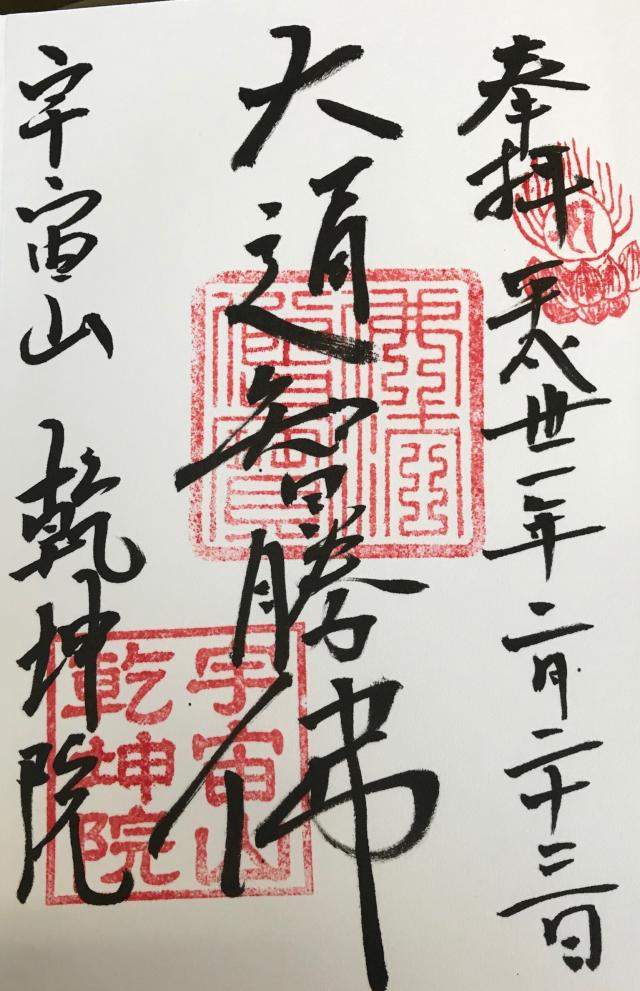 奉拝 平成卅一年二月二十三日
大通智勝佛
宇宙山 乾坤院
宇宙山
乾坤院